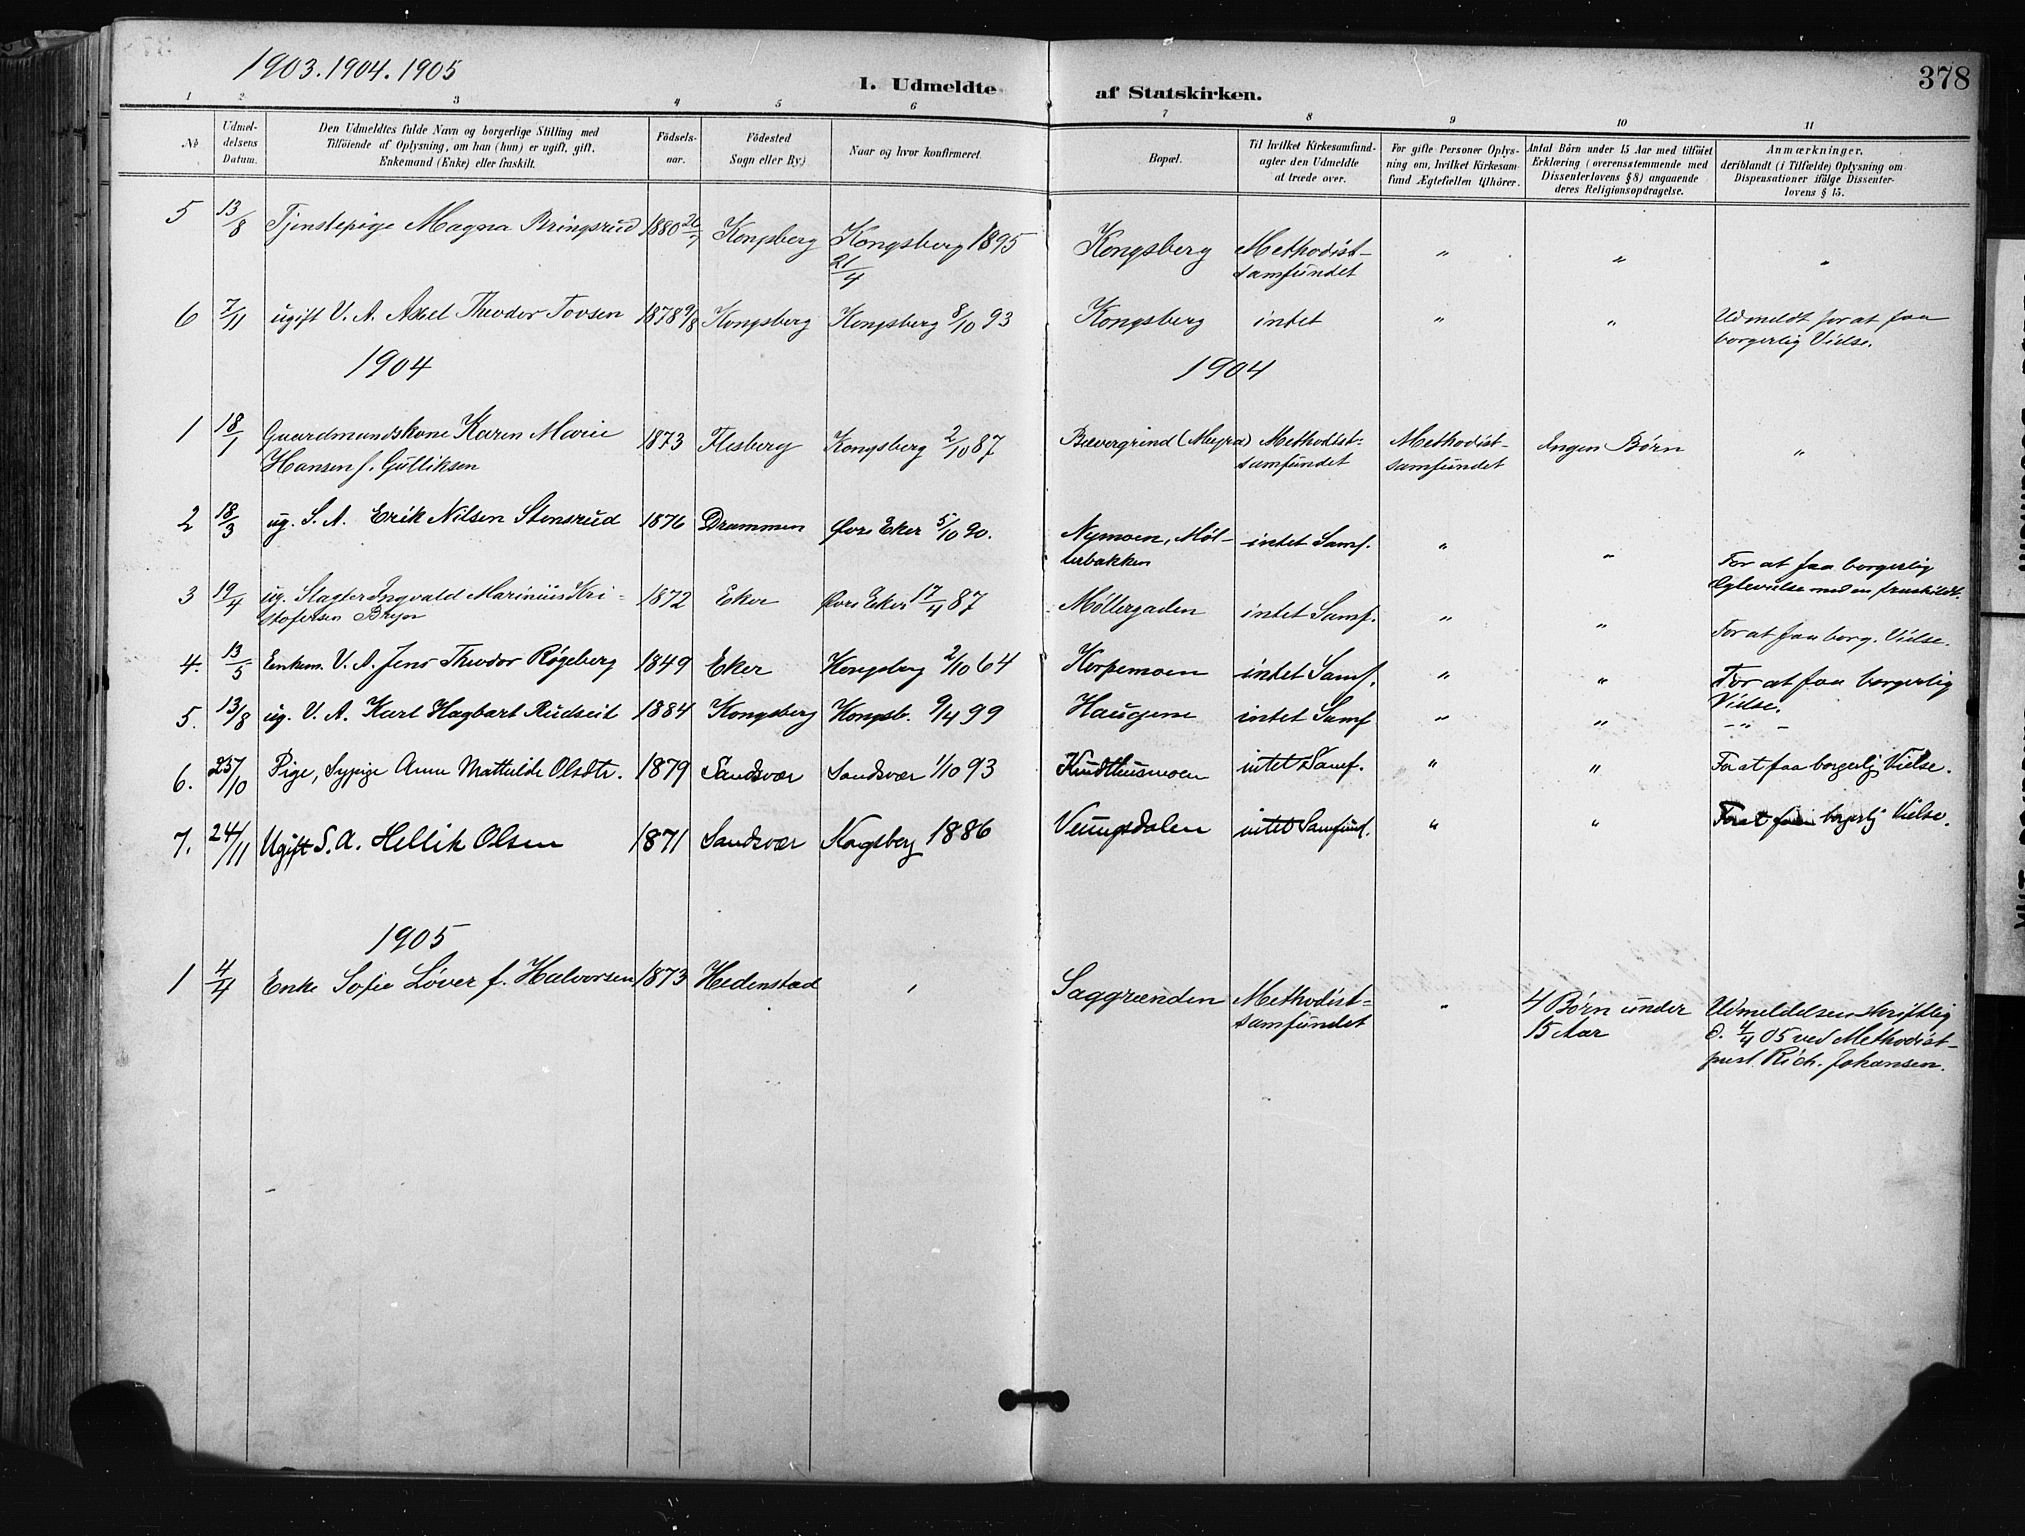 1903. 1904. 1905
1. Udmeldte af Statskirken.
378
1 2 3 4 5 6 7 8 9 10 11
№
Udmel-
delsens
Datum.
Den Udmeldtes fulde Navn og borgerlige Stilling med
Tilföiende af Oplysning, om han (hun) er ugift, gift,
Enkemand (Enke) eller fraskilt.
Födsels-
aar.
Födested
Sogn eller By)
Naar og hvor konfirmeret.
Bopæl.
Til hvilket Kirkesamfund-
agter den Udmeldte
at træde over.
For gifte Personer Oplys-
ning om, hvilket Kirkesam-
fund Ægtefællen tilhörer.
Antal Börn under 15 Aar med tilföiet
Erklæring (overensstemmende med
Dissenterlovens § 8) angaaende
deres Religionsopdragelse.
Anmærkninger.
deriblandt (i Tilfælde) Oplysning om
Dispensationer ifölge Dissenter-
lovens § 15.
5 13/8 Tjenstepige Magna Bringsrud 1880 Kongsberg Kongsberg 1895 Kongsberg Methodist- " " "
21/4 samfundet
6 7/11 ugift V. A. Axel Theodor Tovsen 1878 9/8 Kongsberg Kongsberg 8/10 93 Kongsberg intet " " Udmeldt for at faa
borgerlig Vielse.
1904 1904
1 18/1 Gaardmandskone Karen Marie 1873 Flesberg Kongsberg 2/10 87 Bævergrind (Meyra) Methodist- Methodist- Ingen Børn "
Hansen f. Gulliksen samfundet samfundet
2 18/3 ug. S. A. Erik Nilsen Stensrud 1876 Drammen Øvre Eker 5/10 90. Nymoen, Møl- intet Samf. " " For at faa borgerlig
lerbakken Egtevielse med en fraskildt.
3 19/4 ug. Slagter Ingvald Marinius Kri- 1872 Eker Øvre Eker 17/4 87 Møllergaden intet Samf. " " For at faa borg. Vielse.
stofersen Bryn
4. 13/5 Enkem. V. A. Jens Theodor Røgeberg 1849 Eker Kongsberg 2/10 64 Korpemoen intet Samf. " " For at faa borgerlig
Vielse.
5. 13/8 ug. V. A. Karl Hagbart Rudseit 1884 Kongsberg Kongsb. 9/4 99 Haugene intet Samf " " - " -
6. 25/10 Pige, Sypige Anne Mathilde Olsdtr. 1879 Sandsvær Sandsvær 1/10 93 intet Samf. " " For at faa borgerlig Vielse.
7. 24/11 Ugift S. A. Hellik Olsen 1871 Sandsvær Kogsberg 1886 Veungsdalen intet Samfund. " " For at faa bogerlij Vielse.
1905
1 4/4 Enke Sofie Løver f. Halvorsen 1873 Hedenstad , Saggrenden Methodist- " 4 Børn under Udmeldelsen skriftlig
samfundet 15 Aar d. 4/4 05 ved Methodist-
prest Rich. Johansen.